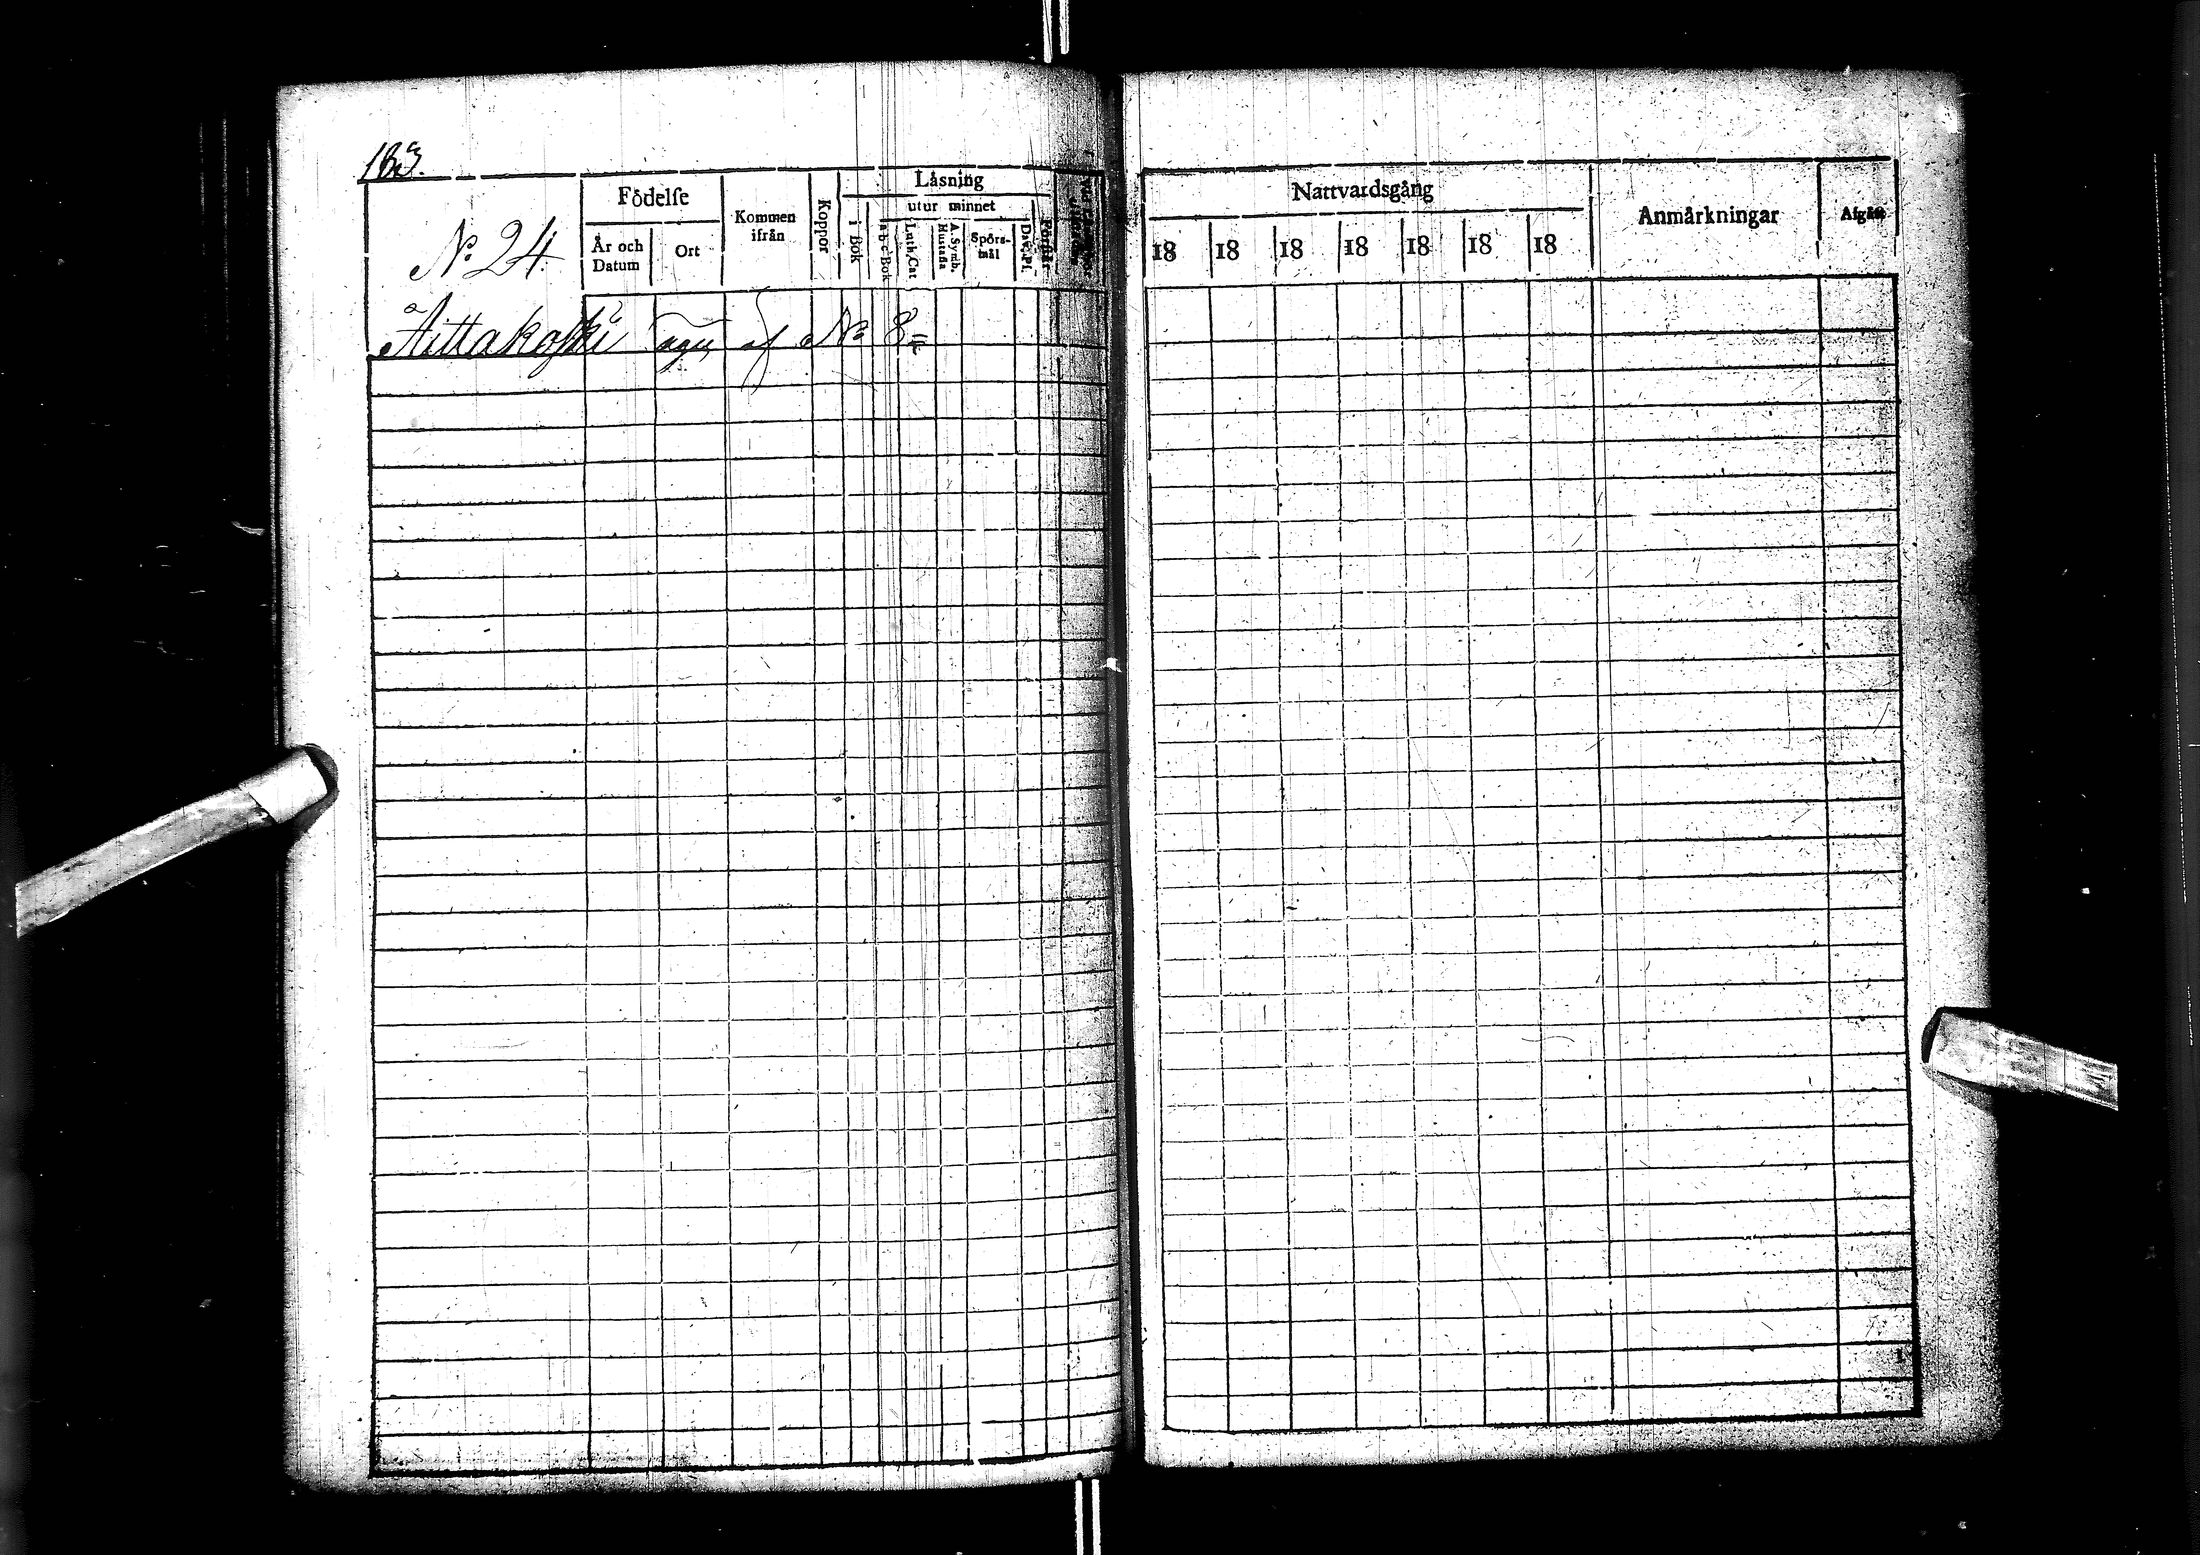 163.
Födelse
Kommen ifrån
Koppor
Läsning
utur minnet
År och Datum
Ort
i Bok
a b c Bok
Luth. Cat
A. Symb. Hustafla
Spörsmål
Dav. Ps.
Förstår
No 24.
Aittakoski äges af No 8
Nattvardsgång
Anmärkningar
Afgått
18 18 18 18 18 18 18